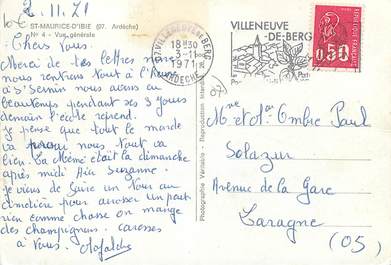 2.11.71
ST-MAURICE-D'IBIE (07. Ardèche)
N° 4 - Vue générale
Chers Vous.
Merci de tes lettres nous
nous rentrons tout à l'heure
à St Sernin nous avons eu
beautemps pendant ses 3 jours
demain l'école reprend.
Je pense que tout le monde
va nous tout va
bien. La Mémé était là dimanche
après midi Suzanne.
je viens de faire un tour au
cimetière pour arroser un peu
rien comme chasse on mange
des champignons. caresses
à Vous.
Photographie Véritable - Reproduction Interdite
07 VILLENEUVE DE BERG
18H30
3-11
1971
ARDECHE
VILLENEUVE
-DE-BERG
0,50
07
Mme et Mr Ombre Paul
Solazur
Avenue de la Gare
Laragne
(05)